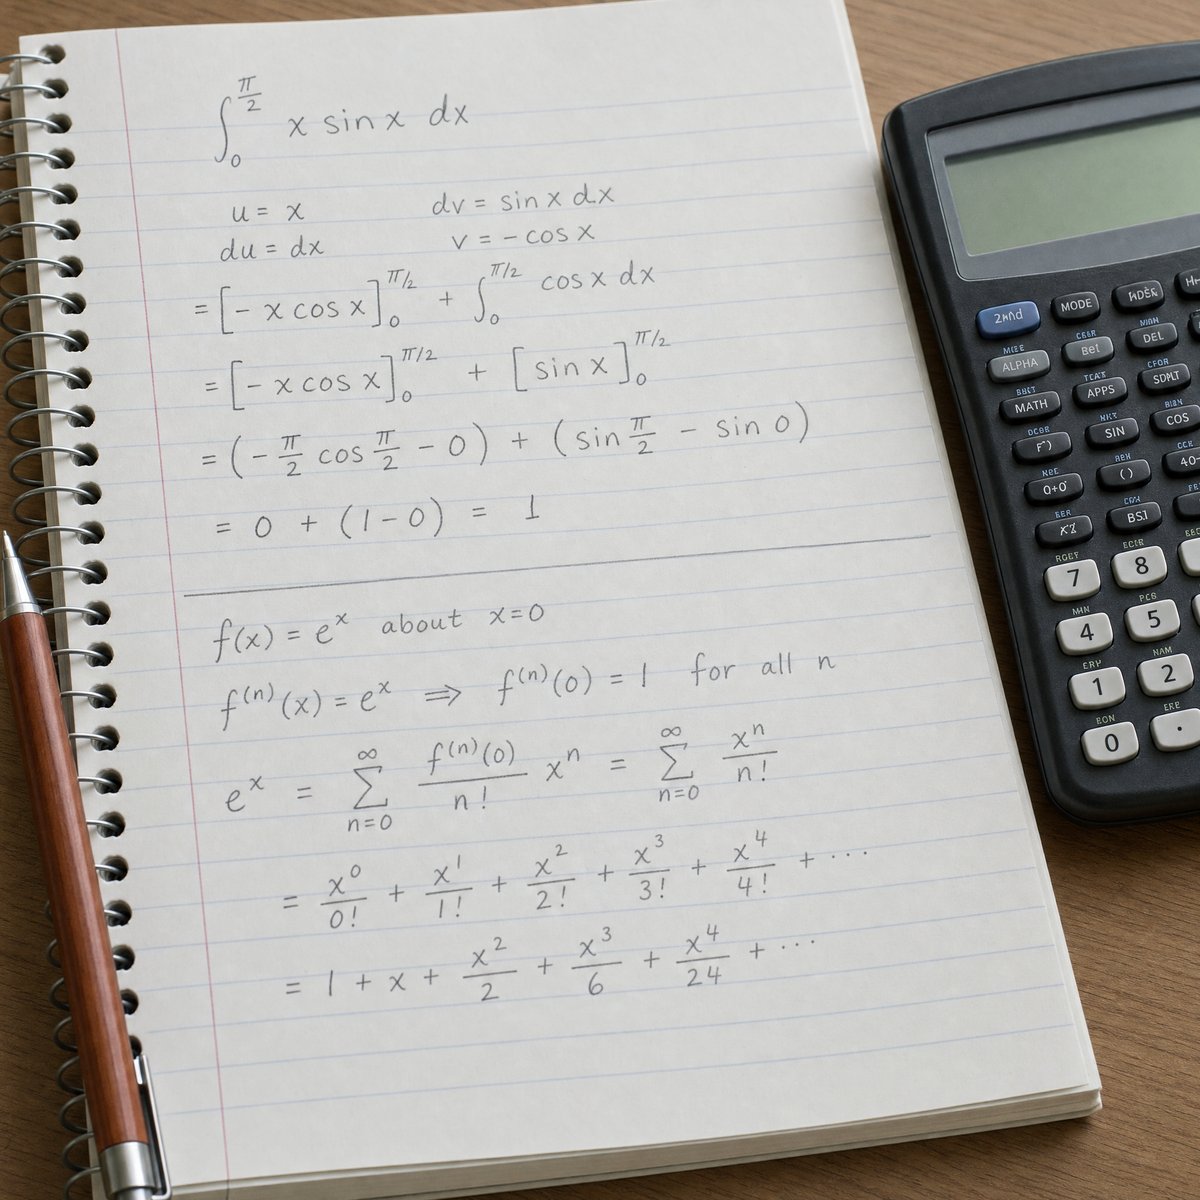 ∫₀^(π/2) x sin x dx
u = x    dv = sin x dx
du = dx    v = − cos x
= [− x cos x]₀^(π/2) + ∫₀^(π/2) cos x dx
= [− x cos x]₀^(π/2) + [sin x]₀^(π/2)
= (− π/2 cos π/2 − 0) + (sin π/2 − sin 0)
= 0 + (1 − 0) = 1
f(x) = eˣ about x = 0
f⁽ⁿ⁾(x) = eˣ ⟹ f⁽ⁿ⁾(0) = 1 for all n
eˣ = ∑_(n=0)^∞ f⁽ⁿ⁾(0)/n! xⁿ = ∑_(n=0)^∞ xⁿ/n!
= x⁰/0! + x¹/1! + x²/2! + x³/3! + x⁴/4! + ···
= 1 + x + x²/2 + x³/6 + x⁴/24 + ···
2nd MODE
ALPHA DEL
MATH APPS
SIN COS
( )
7 8
4 5
1 2
0 .